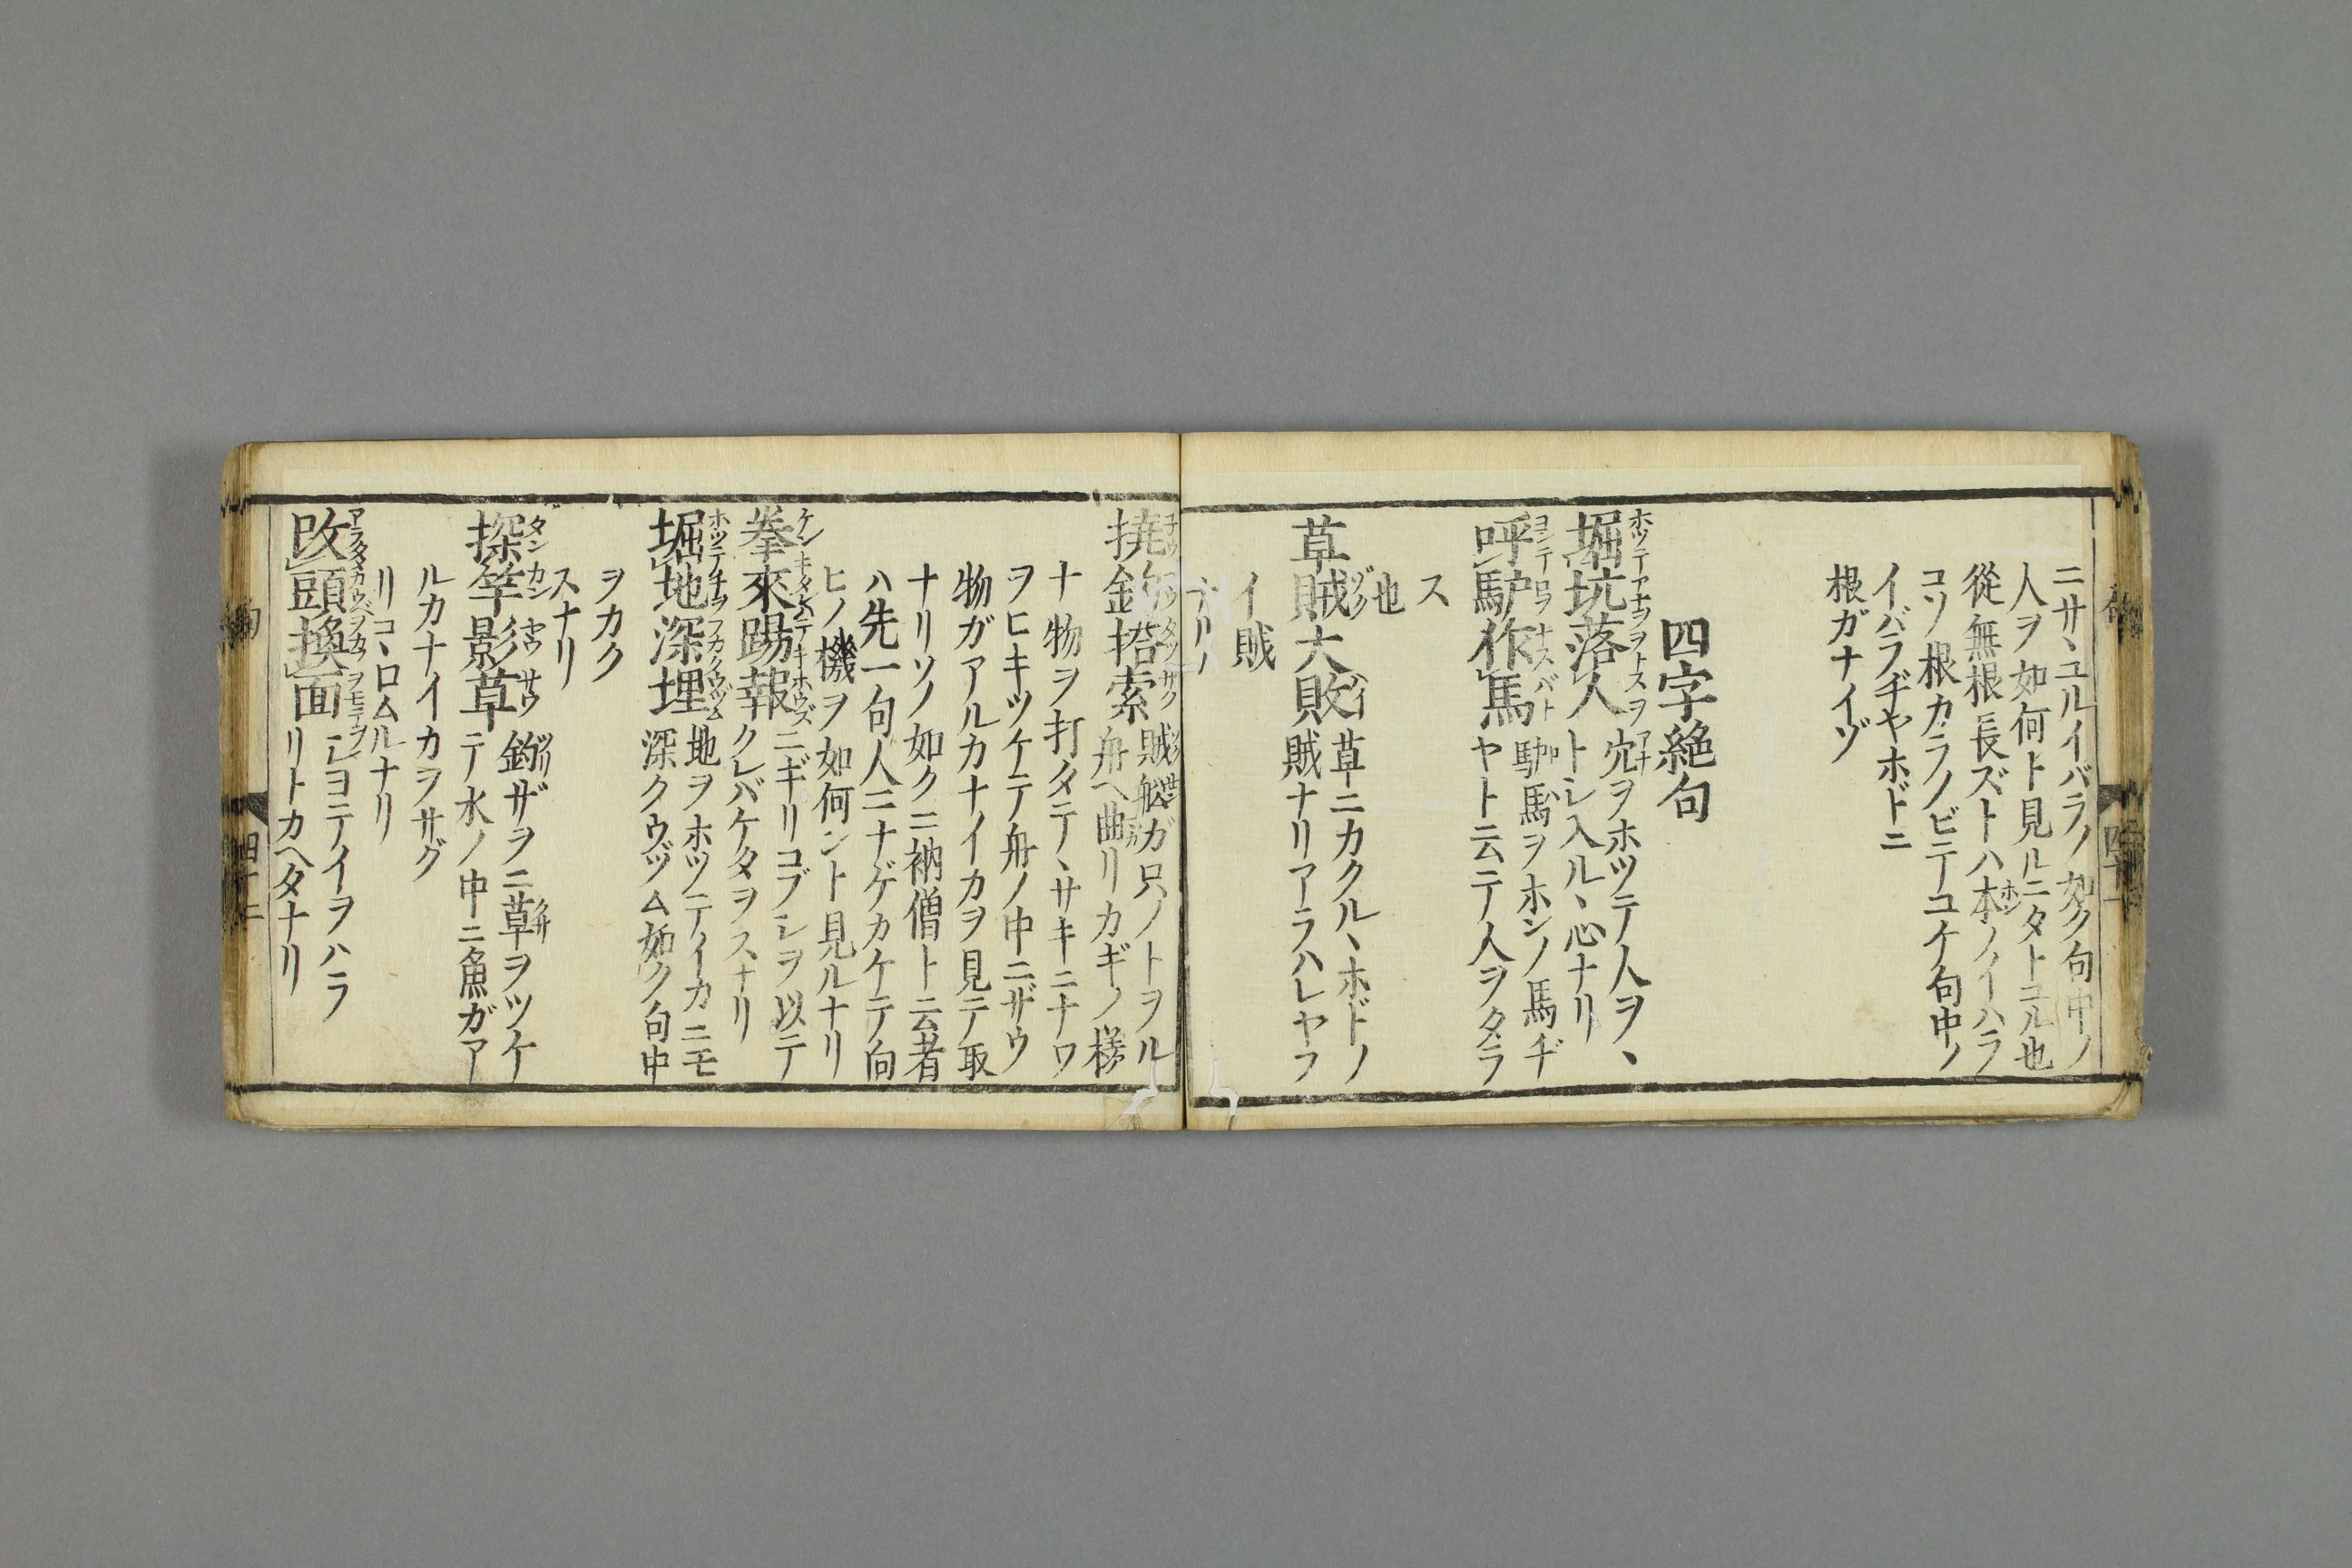 ニサヽユルイバラノ如ク句中ノ
人ヲ如何ト見ルニタトユル也
從無根長ズトハ本ノイハラ
コソ根カラノビテユケ句中ノ
イバラヂヤホドニ
根ガナイゾ
四字絶句
堀坑落人 穴ヲホツテ人ヲヽ
トシ入ルヽ心ナリ
呼馿作馬 馿馬ヲホンノ馬ヂ
ヤト云テ人ヲタラ
ス
也
草賊大敗 草ニカクルヽホドノ
賊ナリアラハレヤフ
イ賊
ナリ
撓鈎搭索 賊舩ガ只ノトヲル
舟ヘ曲リカギノ様
ナ物ヲ打タテヽサキニナワ
ヲヒキツケテ舟ノ中ニザウ
物ガアルカナイカヲ見テ取
ナリソノ如クニ衲僧ト云者
ハ先一句人ニナゲカケテ向
ヒノ機ヲ如何ント見ルナリ
拳來踢報 ニギリコブシヲ以テ
クレバケタヲスナリ
堀地深埋 地ヲホツテイカニモ
深クウヅム如ク句中
ヲカク
スナリ
探竿影草 釣ザヲニ草ヲツケ
テ水ノ中ニ魚ガア
ルカナイカヲサグ
リコヽロムルナリ
改頭換面 シヨテイヲハラ
リトカヘタナリ
四十二